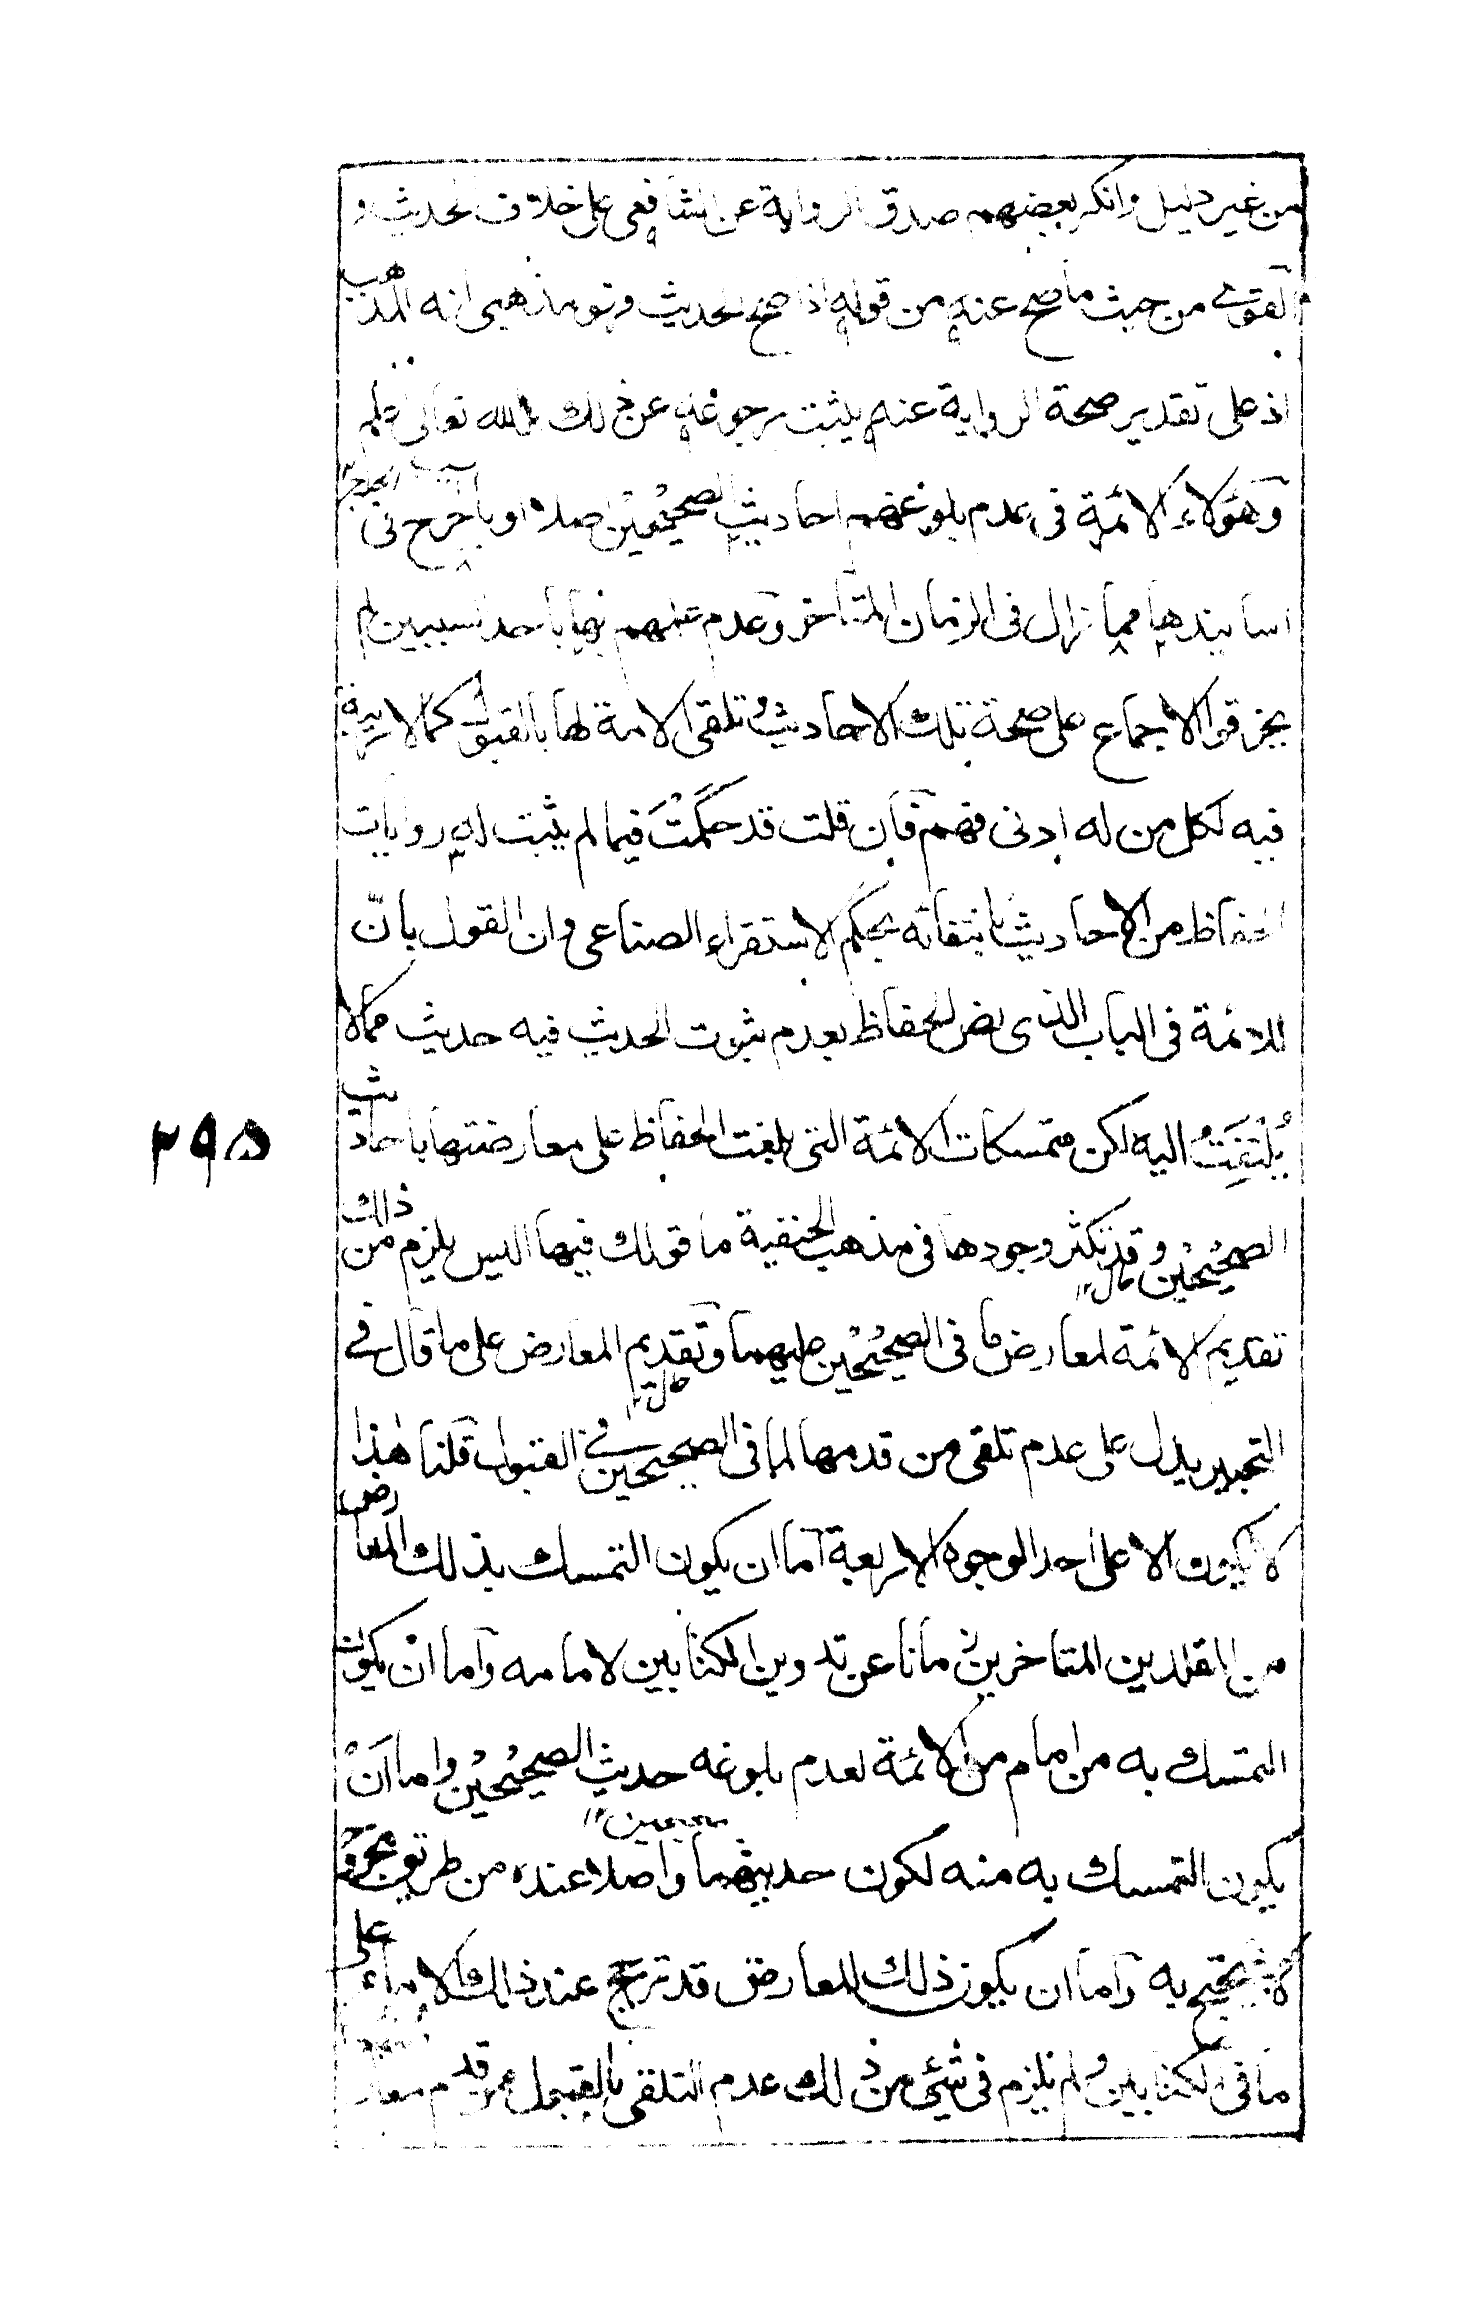 من غير دليل وانكر بعضهم صدق الرواية عن الشافعي على خلاف الحديث و
الفتوى من حيث ما صح عنه من قوله اذا صح الحديث فهو مذهبي انه المذهب
اذ على تقدير صحة الرواية عنه يثبت رجوعه عن ذلك والله تعالى اعلم
وهؤلاء الائمة في عدم بلوغهم احاديث الصحيحين اصلا او بآخر ج في
اسانيدها مما زال في الزمان المتاخر وعدم علمهم بها باحد السببين لم
يخرقوا الاجماع على صحة تلك الاحاديث وتلقي الامة لها بالقبول كما لا ريبة
فيه لكل من له ادنى فهم فان قلت قد حكمت فيما لم يثبت له روايات
الحفاظ من الاحاديث بانتفائه بحكم الاستقراء الصناعي وان القول بانّ
للائمة في الباب الذي نص الحفاظ بعدم ثبوت الحديث فيه حديث مما لا
يُلْتَفَتُ اليه لكن متمسكات الائمة التي بلغت الحفاظ على معارضتها باحاديث
الصحيحين وقد تكثر وجودها في مذهب الحنفية ما قولك فيها اليس يلزم من ذلك
تقديم الائمة لمعارض ما في الصحيحين عليهما وتقديم المعارض على ما قال في
التحرير يدل على عدم تلقي من قدمها لما في الصحيحين في القبول قلنا هذا
لا يكون الا على احد الوجوه الاربعة اما ان يكون التمسك بذلك المعارض
من المقلدين المتاخرين زمانا عن تدوين الكتابين لامامه واما انْ يكون
التمسك به من امام من الائمة لعدم بلوغه حديث الصحيحين واما انْ
يكون التمسك به منه لكون حديثهما واصلا عنده من طريق مجروح
لا يحتج به واما ان يكون ذلك المعارض قد ترجح عند ذلك الامام على
ما في الكتابين ولم يلزم في شيء من ذلك عدم التلقي بالقبول ممن قدم
٢٩٥